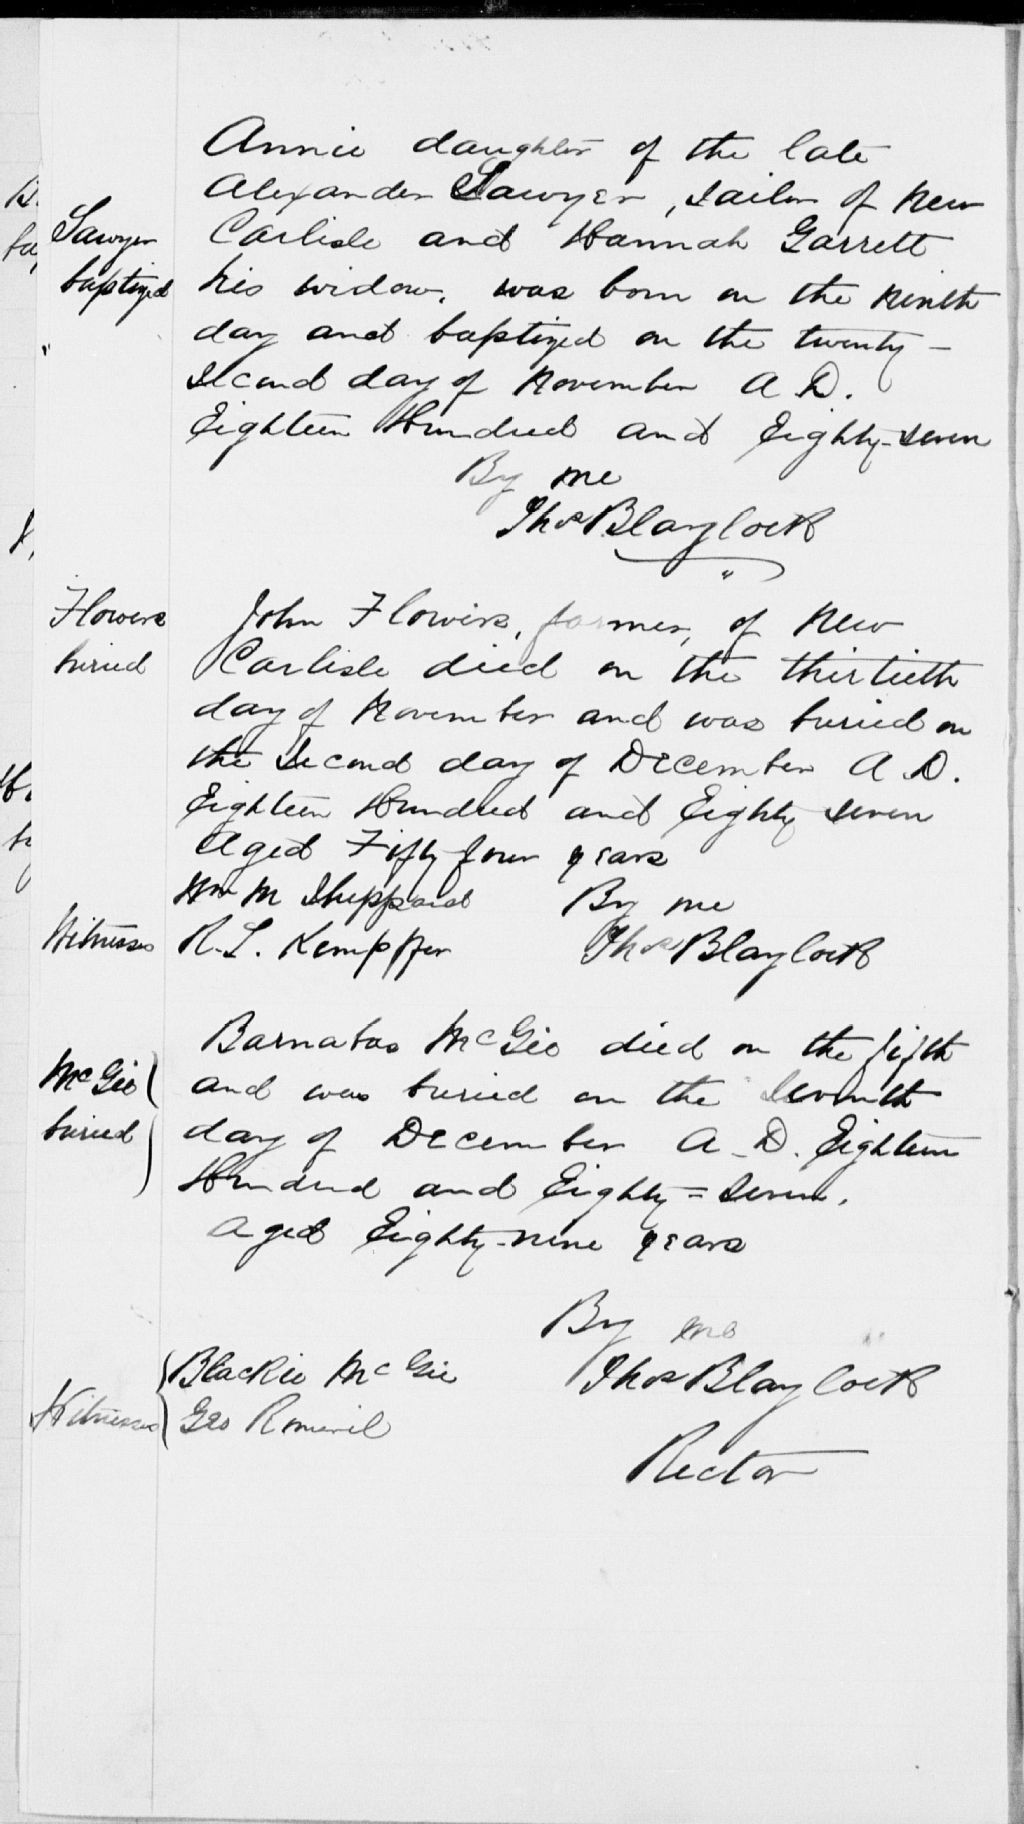 Annie daughter of the late
Alexander Sawyer, sailor of New
Sawyer Carlisle and Hannah Garrett
baptized his widow, was born on the ninth
day and baptized on the twenty-
second day of November A D.
Eighteen Hundred and Eighty-seven
By me
Thos Blaylock
Flowers John Flowers, farmer, of New
buried Carlisle died on the thirtieth
day of November and was buried on
the second day of December A. D.
Eighteen Hundred and Eighty seven
Aged Fifty four years
Wm M Sheppard By me
Witnesses R. L. Kempffer Thos Blaylock
Barnabas McGie died on the fifth
McGie and was buried on the seventh
buried day of December A. D. Eighteen
Hundred and Eighty=seven.
Aged Eighty-nine years
By me
Blackie McGie Thos Blaylock
Witnesses Geo
Rector